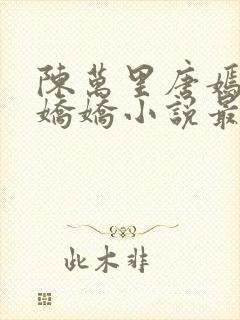 陳萬里唐嫣
嬌嬌小說最
此木非